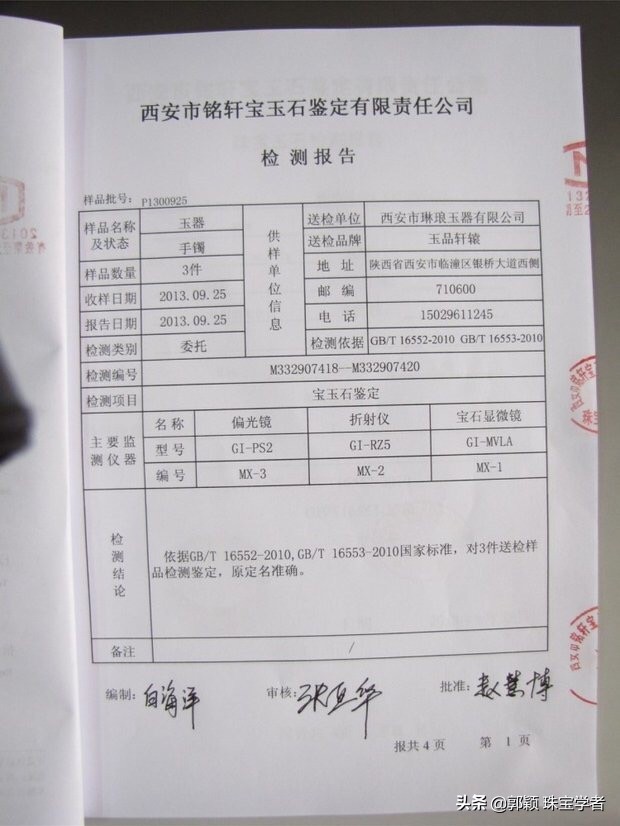 西安市铭轩宝玉石鉴定有限责任公司
检测报告
样品批号: P1300925
样品名称及状态 玉器 手镯
供样单位信息
送检单位 西安市琳琅玉器有限公司
送检品牌 玉品轩辕
样品数量 3件
地址 陕西省西安市临潼区银桥大道西侧
收样日期 2013.09.25
邮编 710600
报告日期 2013.09.25
电话 15029611245
检测类别 委托
检测依据 GB/T 16552-2010 GB/T 16553-2010
检测编号 M332907418—M332907420
检测项目 宝玉石鉴定
主要监测仪器
名称 偏光镜 折射仪 宝石显微镜
型号 GI-PS2 GI-RZ5 GI-MVLA
编号 MX-3 MX-2 MX-1
检测结论
依据GB/T 16552-2010,GB/T 16553-2010国家标准，对3件送检样
品检测鉴定，原定名准确。
备注 /
编制: 白海洋 审核: 批准: 赵慧博
报共4页 第 1 页
头条 @郭颖 珠宝学者